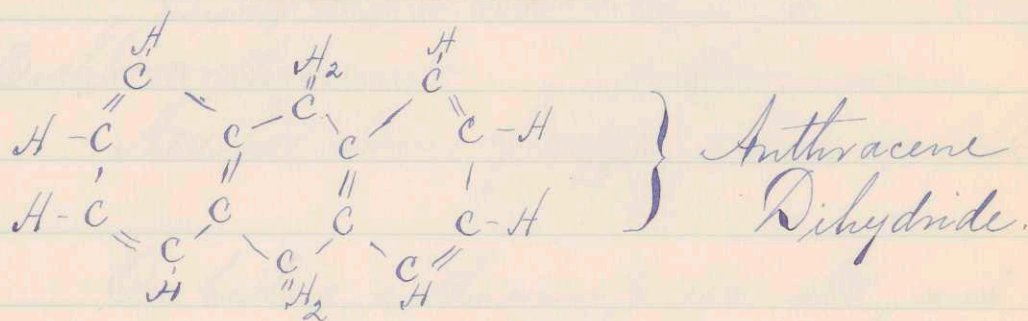 H H₂ H
C C C
H - C C C C - H
H - C C C C - H
C C C
H H₂ H
Anthracene
Dihydride.